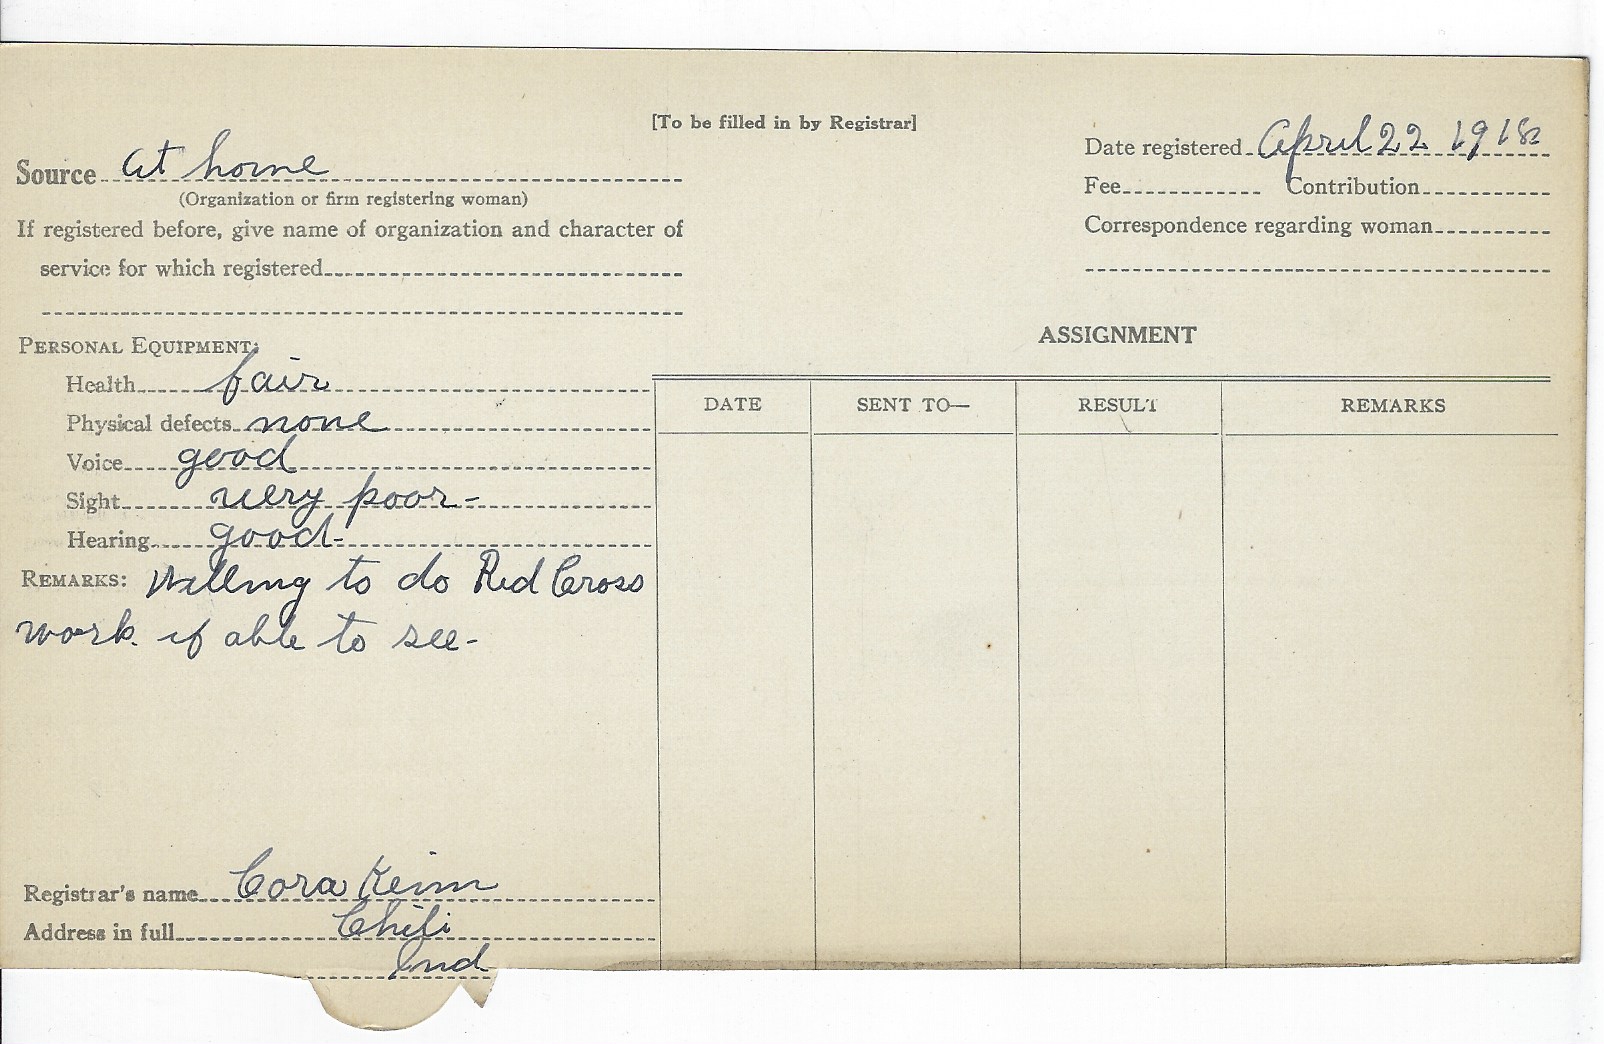 [To be filled in by Registrar]
Date registered April 22 1918
Source at home
(Organization or firm registering woman)
Fee Contribution
If registered before, give name of organization and character of
Correspondence regarding woman
service for which registered
ASSIGNMENT
PERSONAL EQUIPMENT:
Health fair
DATE SENT TO— RESULT REMARKS
Physical defects none
Voice good
Sight very poor-
Hearing good-
REMARKS: Willing to do Red Cross
work if able to see-
Registrar's name Cora Keim
Address in full Chili
Ind